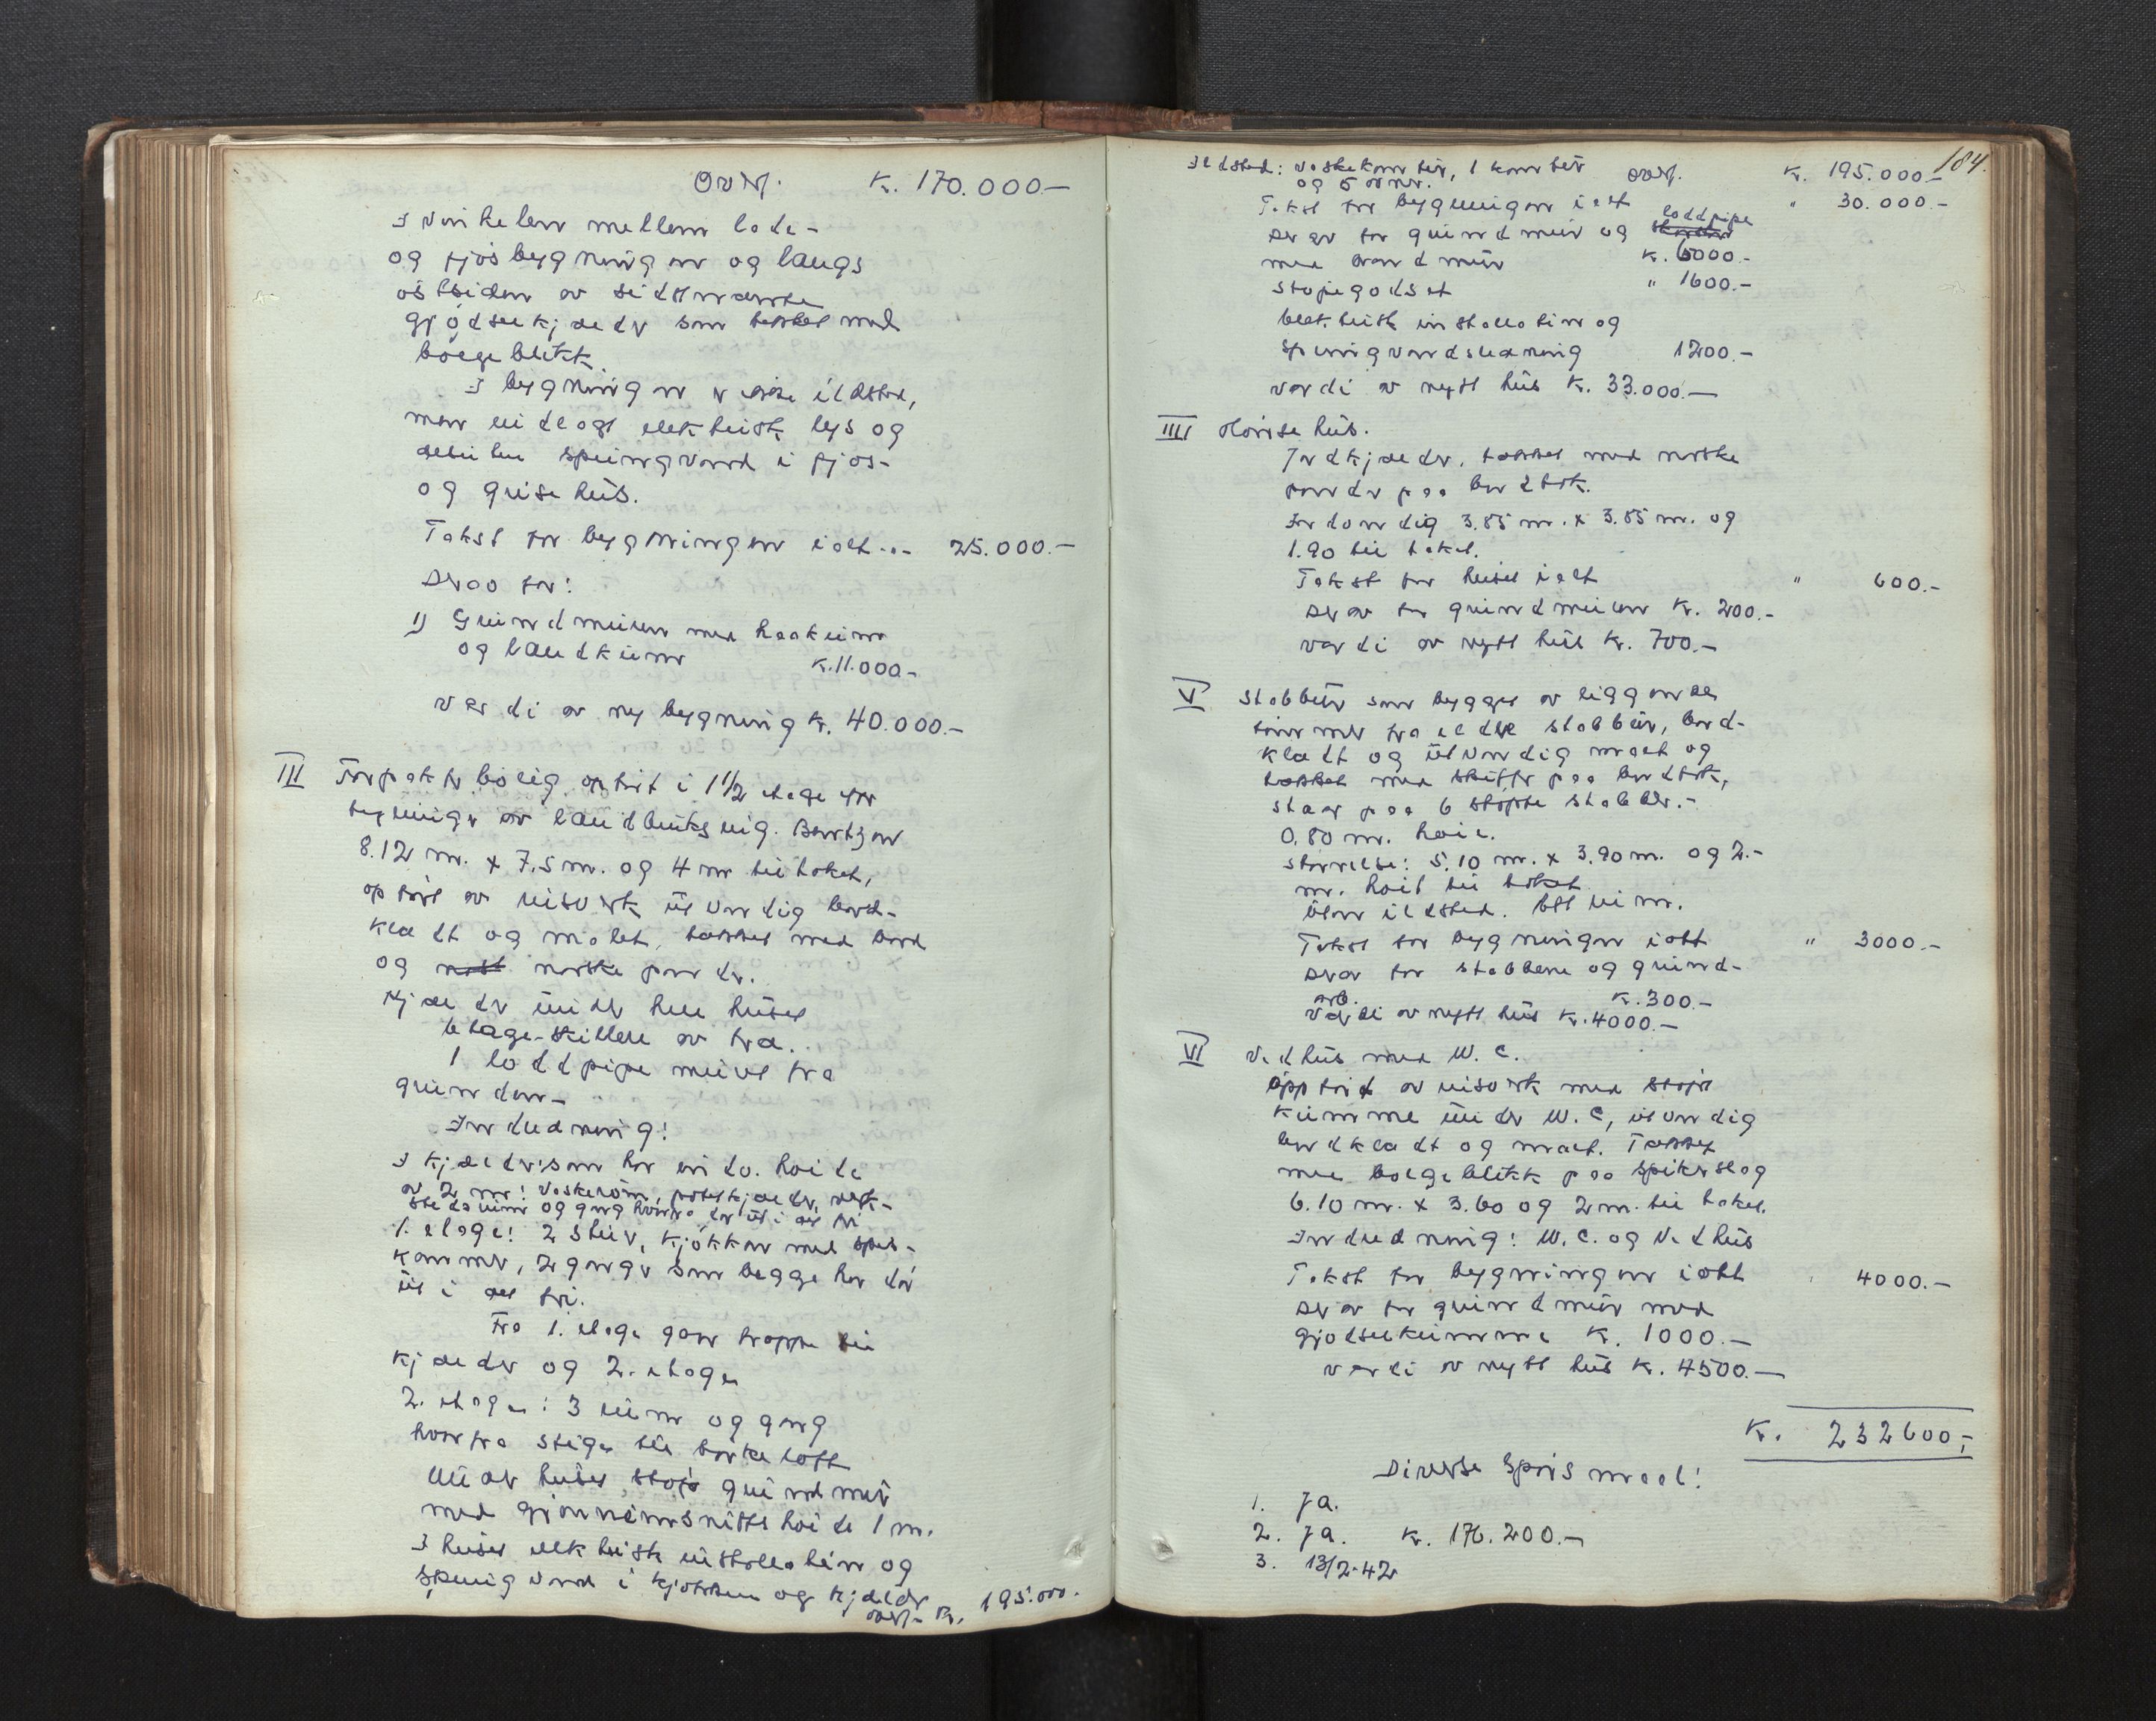 Overf. Kr. 170.000.-
I vinkelen mellem lade-
og fjøsbygningen og langs
østsiden av sidstnævnte
gjødselkjælder som tækket med
bølgeblikk.
I bygningen er ikke ildsted,
men indlagt elektrisk lys og
desuten springvand i fjøs-
og grisehus.
Takst for bygningen ialt... 25.000.-
Derav for:
1) Grundmuren med
og landkum K. 11.000.-
Værdi av ny bygning Kr. 40.000.-
III Forpakterbolig opført i 1 1/2 etage efter
tegninger av landbruksing. Berntzen
8.12 m. x 7.5 m. og 4 m til taket,
opført av reisverk utvendig bord-
klædt og malet, tækket med bord
og norske panner.
Kjælder under hele huset
Etage-skillere av træ.
1 loddpipe muret fra
grunden.-
Inndedning:
I kjælder som har innv. høide
av 2 m: Vaskerom, potetkjælder, verk-
stedsrum og gang hvorfra dør ut i det fri
1. etage: 2 stuer, kjøkken med spis-
kammer, 2 ganger som begge har dør
ut i det fri.
Fra 1. etage gaar trappe til
kjælder og 2. etage
2. etage: 3 rum og gang
hvorfra stige til tørkeloft
Under huset støpt grundmur
med gjennemsnitts høide 1 m.
I huset elektrisk installation og
springvand i kjøkken og kjælder
Overf.- Kr. 195.000.-
184.
Ildsted: Vaskekomfür, 1 komfür Overf. Kr. 195.000.-
og 5 ovner.
Takst for bygningen ialt " 30.000.-
loddpipe
Derav for grundmur og
med brandmur K. 6000.-
støpegodset " 1600.-
Elektrisk installation og
springvandsledning 1200.-
Værdi av nytt hus Kr. 33.000.-
IIII Hønsehus.
Jordkjælder, tækket med norske
panner paa bordtak.
Indvendig 3.85 m. x 3.85 m. og
1.90 til taket.
Takst for huset ialt " 600.-
Derav for grundmuren Kr. 200.-
Værdi av nytt hus Kr. 700.-
V Stabbur som bygget av liggende
tømmer fra eldre stabbur, bord-
klædt og utvendig malt og
tækket med skiffer paa bordtak,
staar paa 6 støpte stabber.-
0.80 m. høie.
Størrelse: 5.10 m. x 3.90 m. og 2.-
m. høit til taket
Uten ildsted. Ett rum.
Takst for bygningen ialt " 3000.-
Derav for stabbene og grund-
arb. K. 300.-
Værdi av nytt hus Kr. 4000.-
VI Vedhus med W. C.
Oppført av reisverk med støpt
kumme under W. C, utvendig
bordklædt og malt. Tækket
med bølgeblikk paa spikerslag
6.10 m. x 3.60 og 2 m. til taket.
Inndedning: W. C. og Vedhus
Takst for bygningen ialt 4000.-
Derav for grundmur med
gjødselkumme K. 1000.-
Værdi av nytt hus Kr. 4500.-
Kr. 232600.-
Diverse Spørsmaal:
1. Ja.
2. Ja. Kr. 176.200.-
3. 13/2-42